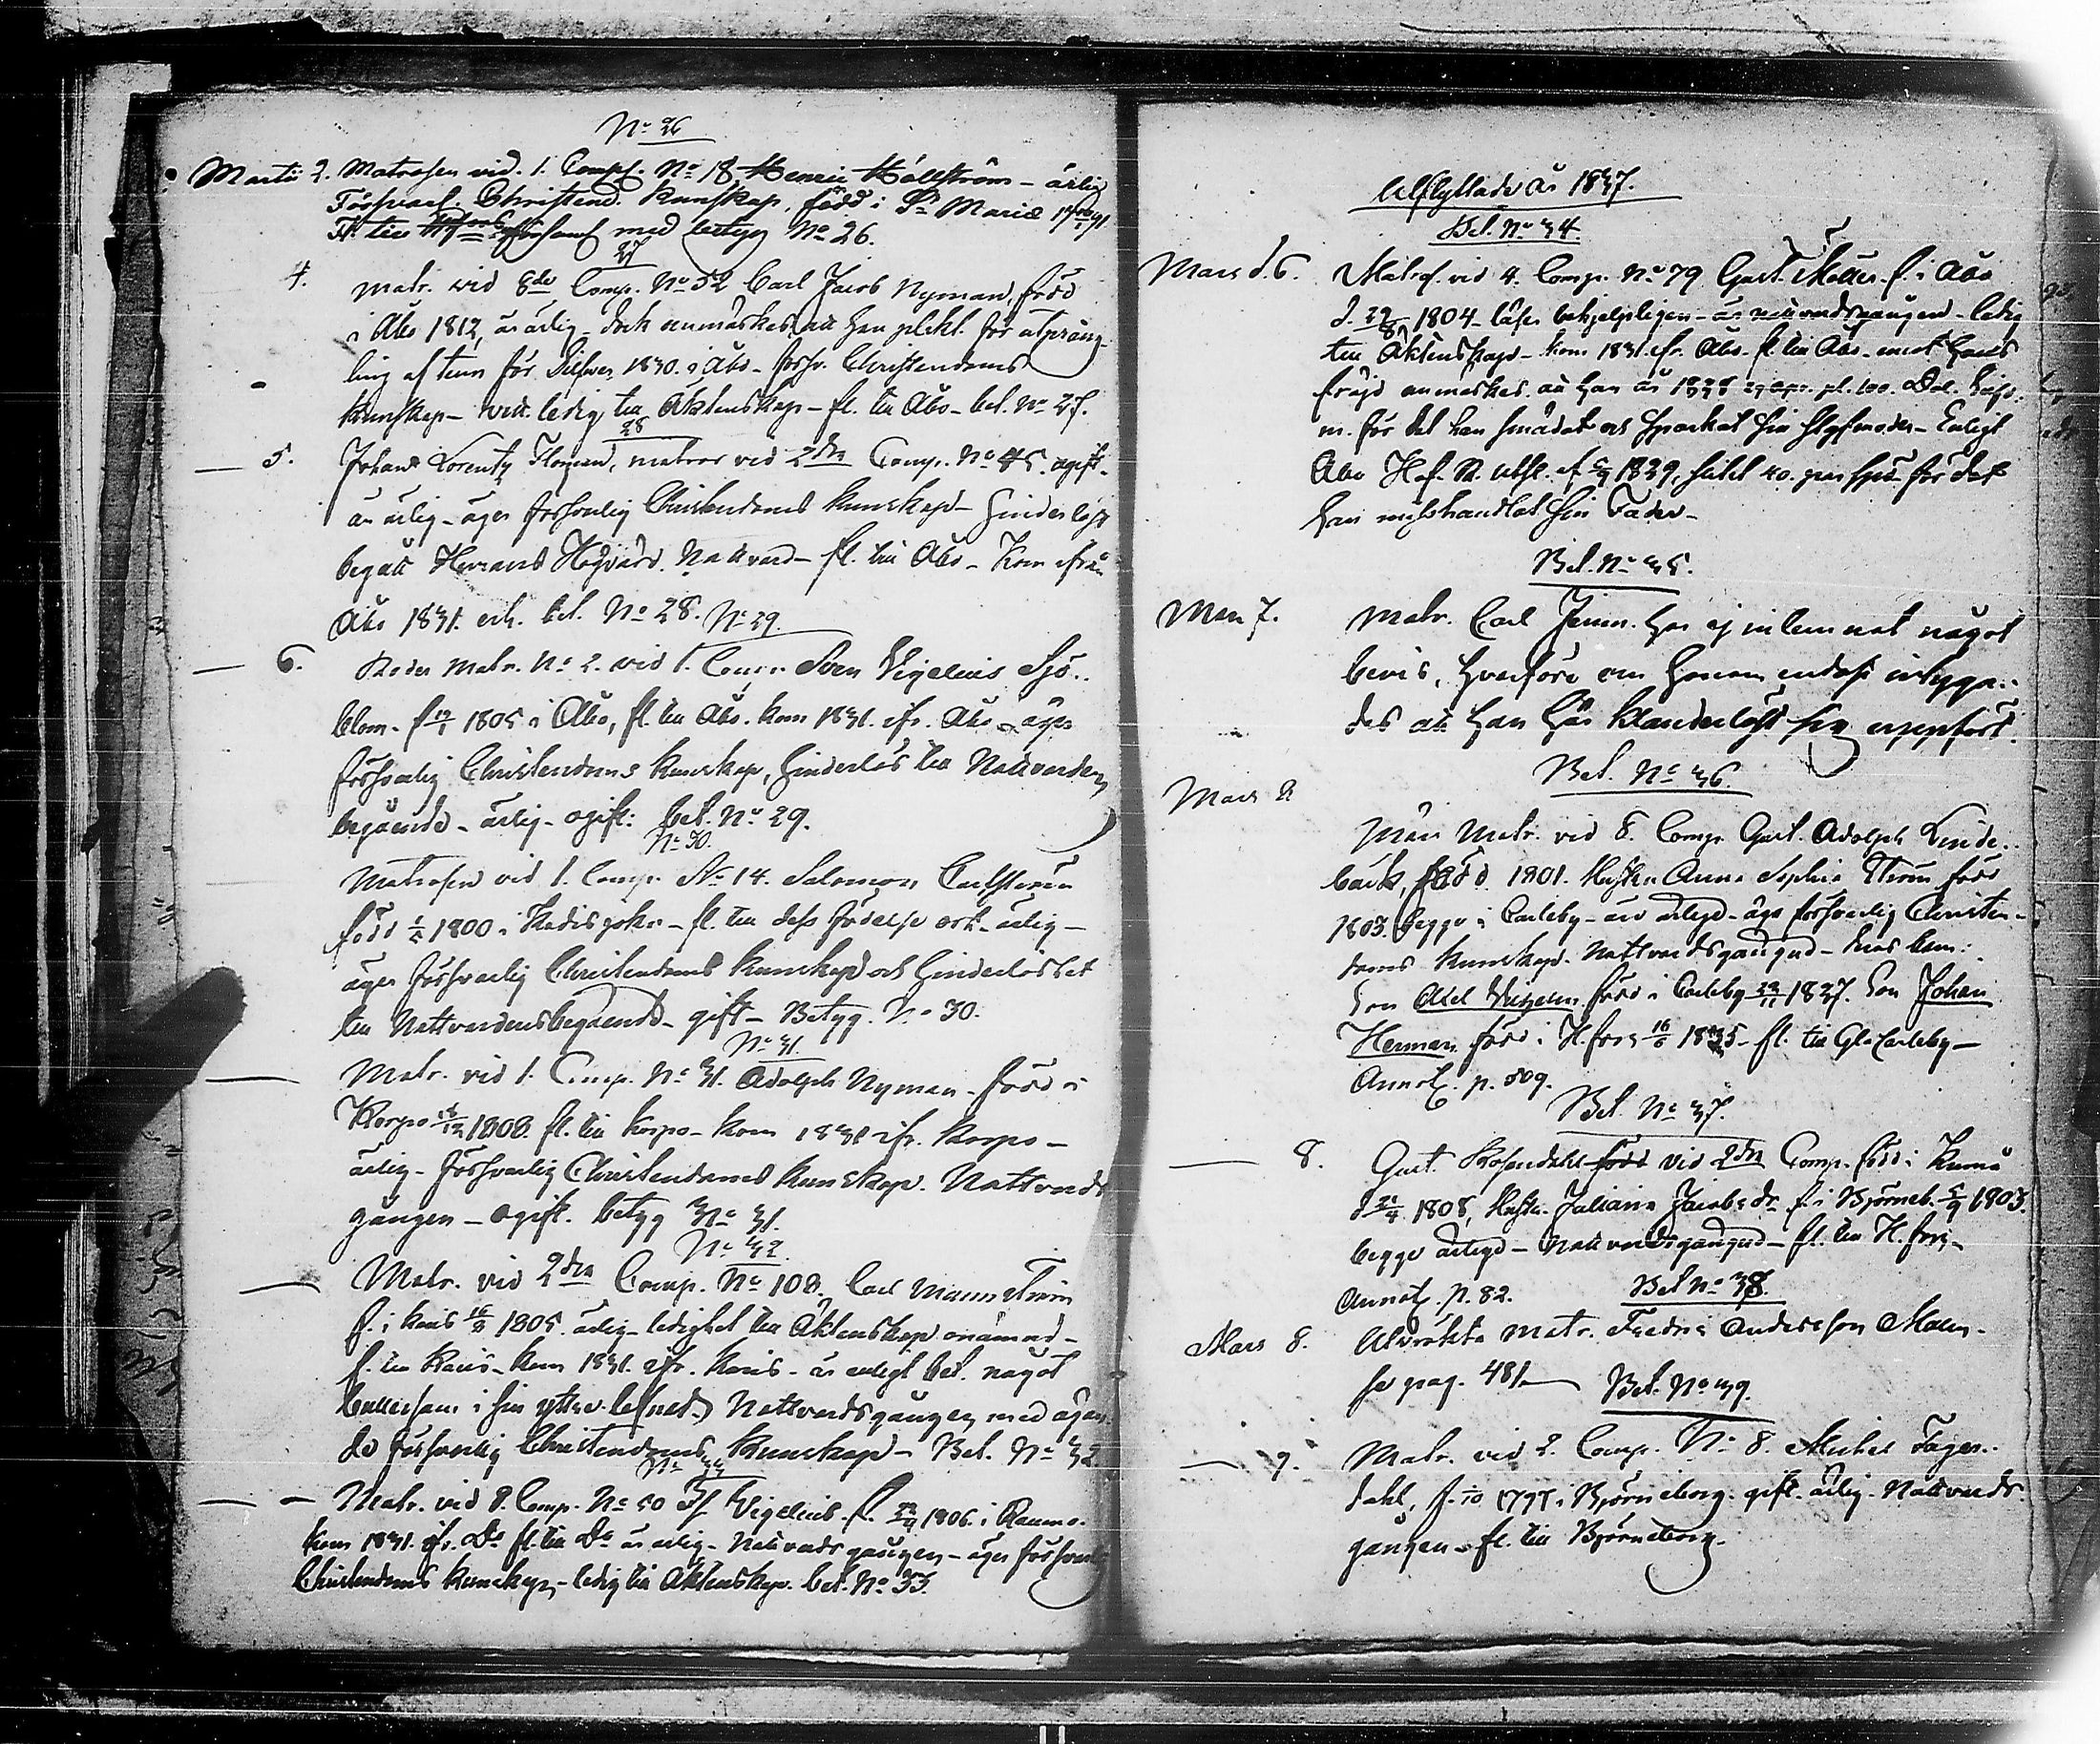 No 26
Martii 2. Matrosen vid. 1. Comp. No 18 Henric Hållström – ärlig
Försvarl. Christend. Kunskap, född i St Mariæ
Fl. till med betyg No 26.
27
4. Matr. vid 8de Comp. No 52 Carl Jacob Nyman, född
i Åbo 1812, är ärlig – dock anmärkes att han plikt. för utpräng-
ling af tenn för Silfver 1830. i Åbo – försv. Christendoms
kunskap – vitt. ledig till Äktenskap – fl. till Åbo – bet. No 27.
28
— 5. Johan Lorentz Floman, matros vid 2dra Comp. No 45. ogift.
är ärlig – äger försvarlig Christendoms kunskap – hinderlöst
begått Herrans Högvärd. Nattvard – fl. till Åbo – Kom ifrån
Åbo 1831. erh. bet. No 28.
No 29.
— 6. Matr. No 2. vid 1. Comp. Sven Vigelius Sjö-
blom. f. 1805 i Åbo, fl. till Åbo. kom 1831. ifr. Åbo – äger
försvarlig Christendoms kunskap, hinderlös till Nattvardens
begående – ärlig – ogift: bet. No 29.
No 30.
Matrosen vid 1. Comp. No 14. Salomon
född 1800 i – fl. till dess födelse ort. ärlig –
äger försvarlig Christendoms kunskap och hinderlös
till Nattvardens begående – gift – Betyg. No 30.
No 31.
— Matr. vid 1. Comp. No 31. Adolph Nyman – född i
Korpo 1808. fl. till Korpo – kom 1831 ifr. Korpo –
ärlig – försvarlig Christendoms kunskap. Nattvards
gången – ogift. betyg No 31.
No 32.
— Matr. vid 2dra Comp. No 108. Carl Mannström
f. i Karis 1805. ärlig – ledighet till Äktenskap onämnd –
f. till Karis – kom 1831. ifr. Karis – är enligt bet. något
bullersam i sin yttre lefnad. Nattvardsgången med ägan-
de försvarlig Christendoms kunskap – Bet. No 32
No 33
— – Matr. vid 8. Comp. No 50 Vigelius. f. 1806. i Raumo.
kom 1831. ifr. Do fl. till Do är ärlig – Nattvards gången – äger försvarlig
Christendoms kunskap – ledig till Äktenskap. bet. No 33.
Utflyttade år 1837.
Bet. No 34.
Mars d. 6. Matros. vid 4. Comp. No 79 Gust. Möller f. i Åbo
d. 1804 – läser behjelpligen – är nattvardsgången – ledig
till Äktenskap – kom 1831. ifr. Åbo – fl. till Åbo – mot hans
fräjd anmärkes att han år 1828 29 apr. pl. 100. Dal.
m. för det han smädat och sparkat sin styfmoder – Enligt
Åbo Hof. R. utsl. af 1829, 40. par spö för det
han misshandlat sin Fader –
Bet. No 35.
Mars 7. Matr. Carl har ej inlemnat något
bevis, hvarföre om honom endast intyga-
des att han här klanderlöst sig uppfört.
Bet. No 36.
Mars
Matr. vid 8. Comp. Gust. Adolph Linde-
bäck, född 1801. Hustru Anna Sophia född
1803. begge i Carleby – äro ärlige – äga försvarlig Christen-
doms kunskap – Nattvardsgångna –
Son Axel Wilhelm född i Carleby 1827. Son Johan
Herman född i H.fors 16/6 1835 – fl. till Gl. Carleby –
Annot. p. 509.
Bet. No 37.
— 8. Gust. Rosendahl född vid 2dra Comp. född i Kumo
d. 1808, Hustru Juliana Jacobsdr f. i Björneb. 1803.
begge ärlige – Nattvardsgångna – fl. till H.fors –
Annot. p. 82.
Bet No 38.
Mars 8. Utvräkte Matr. Fredric Andersson Malm-
se pag. 481
Bet. No 39.
— 9. Matr. vid 2. Comp. No 8. Michel Fager-
dahl, f. 1797 i Björneborg. gift. ärlig. Nattvards-
gången – fl. till Björneborg.